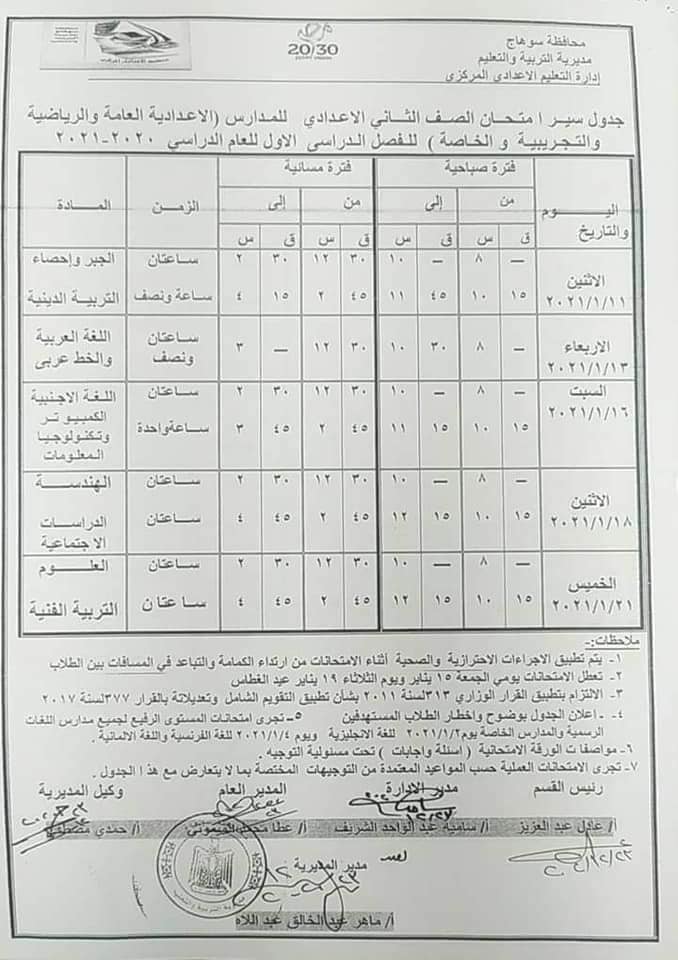 محافظة سوهاج
مديرية التربية والتعليم
إدارة التعليم الاعدادى المركزى
20/30
جدول سير امتحان الصف الثاني الاعدادي للمدارس (الاعدادية العامة والرياضية
والتجريبية والخاصة ) للفصل الدراسي الاول للعام الدراسي ٢٠٢٠-٢٠٢١
اليوم والتاريخ فترة صباحية فترة مسائية الزمن المادة
من إلى من إلى
ق س ق س ق س ق س
الاثنين ٢٠٢١/١/١١
— ٨ — ١٠ ٣٠ ١٢ ٣٠ ٢ ساعتان الجبر وإحصاء
١٥ ١٠ ٤٥ ١١ ٤٥ ٢ ١٥ ٤ ساعة ونصف التربية الدينية
الاربعاء ٢٠٢١/١/١٣
— ٨ ٣٠ ١٠ ٣٠ ١٢ — ٣ ساعتان ونصف اللغة العربية والخط عربى
السبت ٢٠٢١/١/١٦
— ٨ — ١٠ ٣٠ ١٢ ٣٠ ٢ ساعتان اللغة الاجنبية
١٥ ١٠ ١٥ ١١ ٤٥ ٢ ٤٥ ٣ ساعة واحدة الكمبيوتر وتكنولوجيا المعلومات
الاثنين ٢٠٢١/١/١٨
— ٨ — ١٠ ٣٠ ١٢ ٣٠ ٢ ساعتان الهندسة
١٥ ١٠ ١٥ ١٢ ٤٥ ٢ ٤٥ ٤ ساعتان الدراسات الاجتماعية
الخميس ٢٠٢١/١/٢١
— ٨ — ١٠ ٣٠ ١٢ ٣٠ ٢ ساعتان العلوم
١٥ ١٠ ١٥ ١٢ ٤٥ ٢ ٤٥ ٤ ساعتان التربية الفنية
ملاحظات:-
١- يتم تطبيق الاجراءات الاحترازية والصحية أثناء الامتحانات من ارتداء الكمامة والتباعد في المسافات بين الطلاب
٢- تعطل الامتحانات يومي الجمعة ١٥ يناير ويوم الثلاثاء ١٩ يناير عيد الغطاس
٣- الالتزام بتطبيق القرار الوزاري ٣١٣لسنة ٢٠١١ بشأن تطبيق التقويم الشامل وتعديلاتة بالقرار ٣٧٧لسنة ٢٠١٧
٤- اعلان الجدول بوضوح واخطار الطلاب المستهدفين ٥- تجرى امتحانات المستوى الرفيع لجميع مدارس اللغات
الرسمية والمدارس الخاصة يوم ٢٠٢١/١/٢ للغة الانجليزية ويوم ٢٠٢١/١/٤ للغة الفرنسية واللغة الالمانية .
٦- مواصفات الورقة الامتحانية ( اسئلة واجابات ) تحت مسئولية التوجيه .
٧- تجرى الامتحانات العملية حسب المواعيد المعتمدة من التوجيهات المختصة بما لا يتعارض مع هذا الجدول .
رئيس القسم مدير الادارة المدير العام وكيل المديرية
أ/ عادل عبد العزيز أ/ سامية عبد الواحد الشريف أ/ عطا محمد الميموني أ/ حمدي مصطفى
مدير المديرية
أ/ ماهر عبد الخالق عبد اللاه